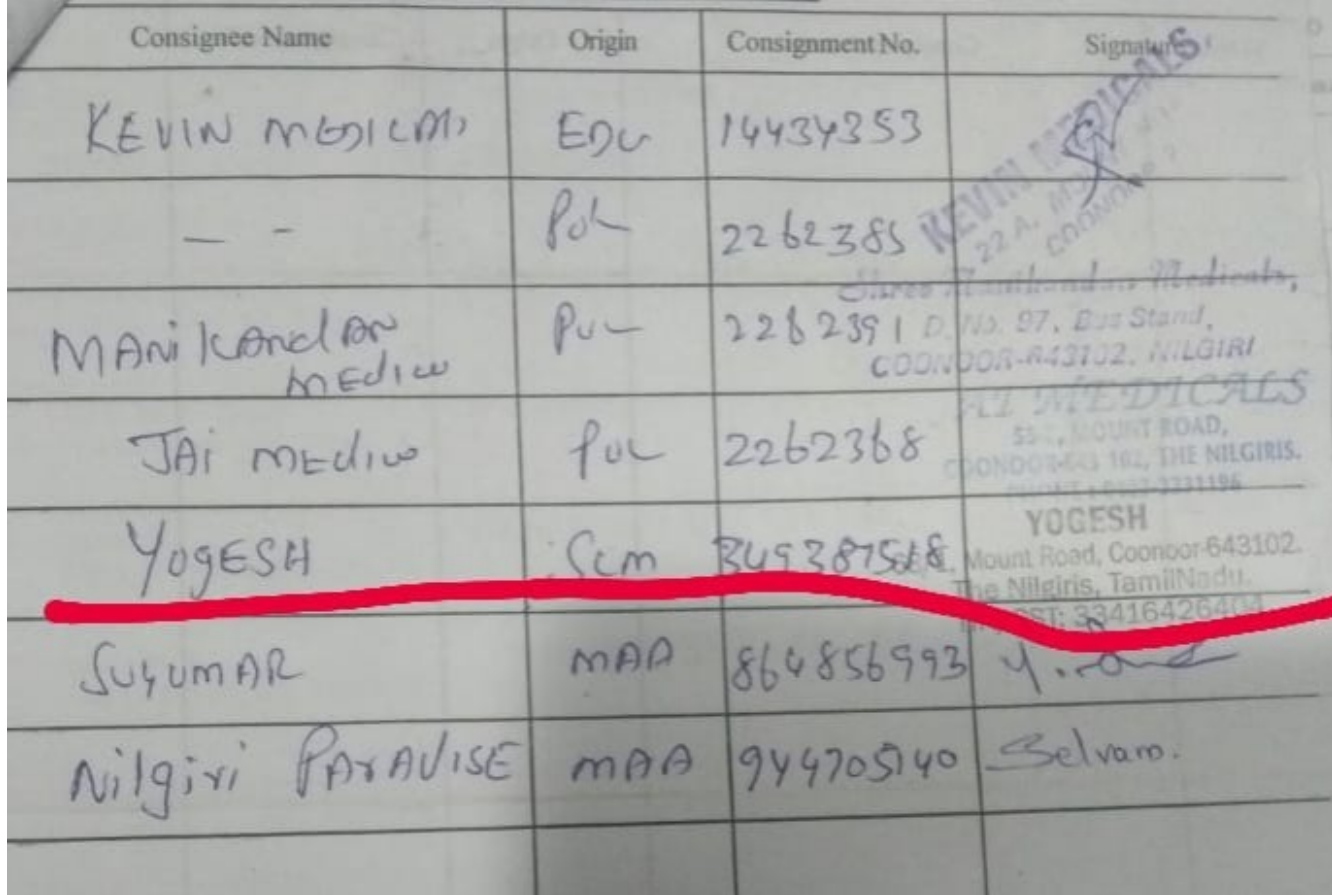 Consignee Name Origin Consignment No. Signature
KEVIN MEDICAL EDU 14434353
KEVIN MEDICALS
22 A,
COONOOR
- - 2262385
MANiKANdAN PUL 2262391
MEdicu
Shree Manikandan Medicals,
D. No. 97, Bus Stand,
COONOOR-643102. NILGIRI
JAi MEdicu PUL 2262368
JAI MEDICALS
MOUNT ROAD,
COONOOR-643 102, THE NILGIRIS.
YOgESH 
YOGESH
Mount Road, Coonoor-643102.
The Nilgiris, TamilNadu.
33416426404
MAA 864856993
Nilgiri PArAdiSE MAA 944705140 Selvam.